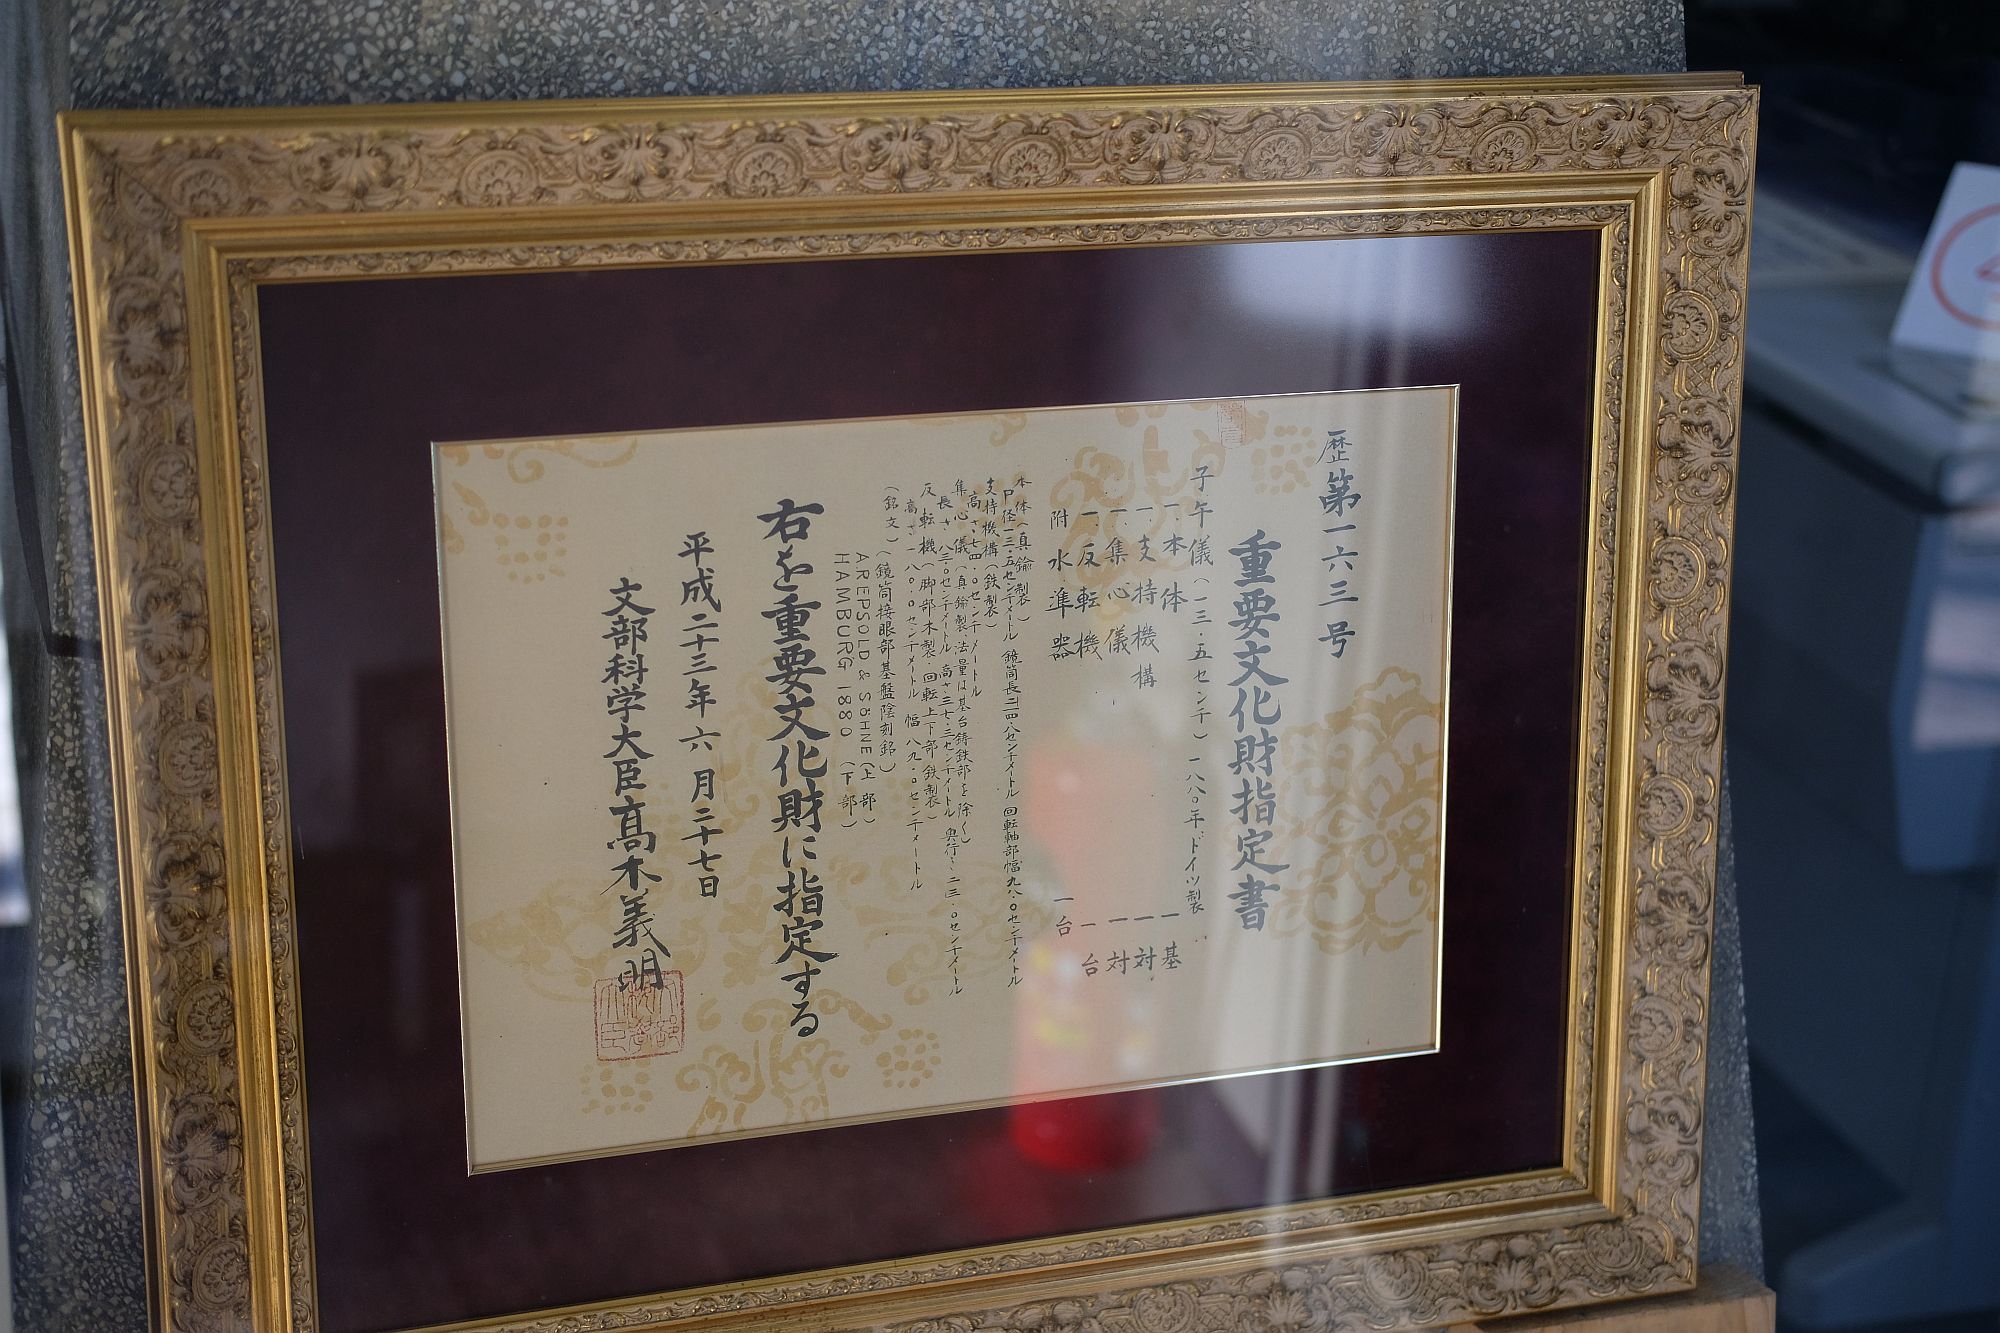 歴第一六三号
重要文化財指定書
子午儀(一三・五センチ)一八八〇年ドイツ製
一、本体 一基
一、支持機構 一対
一、集心儀 一対
一、反転機 一台
附 水準器 一台
本体(真鍮製)
口径一三・五センチメートル 鏡筒長二一四・八センチメートル 回転軸部幅九八・〇センチメートル
支持機構(鉄製)
高さ・七四・〇センチメートル
集心儀(真鍮製 法量は基台鋳鉄部を除く)
長さ・八三・〇センチメートル 高さ・三七・三センチメートル 奥行・二三・〇センチメートル
反転機(脚部木製・回転上下部 鉄製)
高さ・一八〇・〇センチメートル 幅 八九・〇センチメートル
(銘文)(鏡筒接眼部基盤陰刻銘)
AREPSOLD & SÖHNE(上部)
HAMBURG 1880(下部)
右を重要文化財に指定する
平成二十三年六月二十七日
文部科学大臣 髙木義明